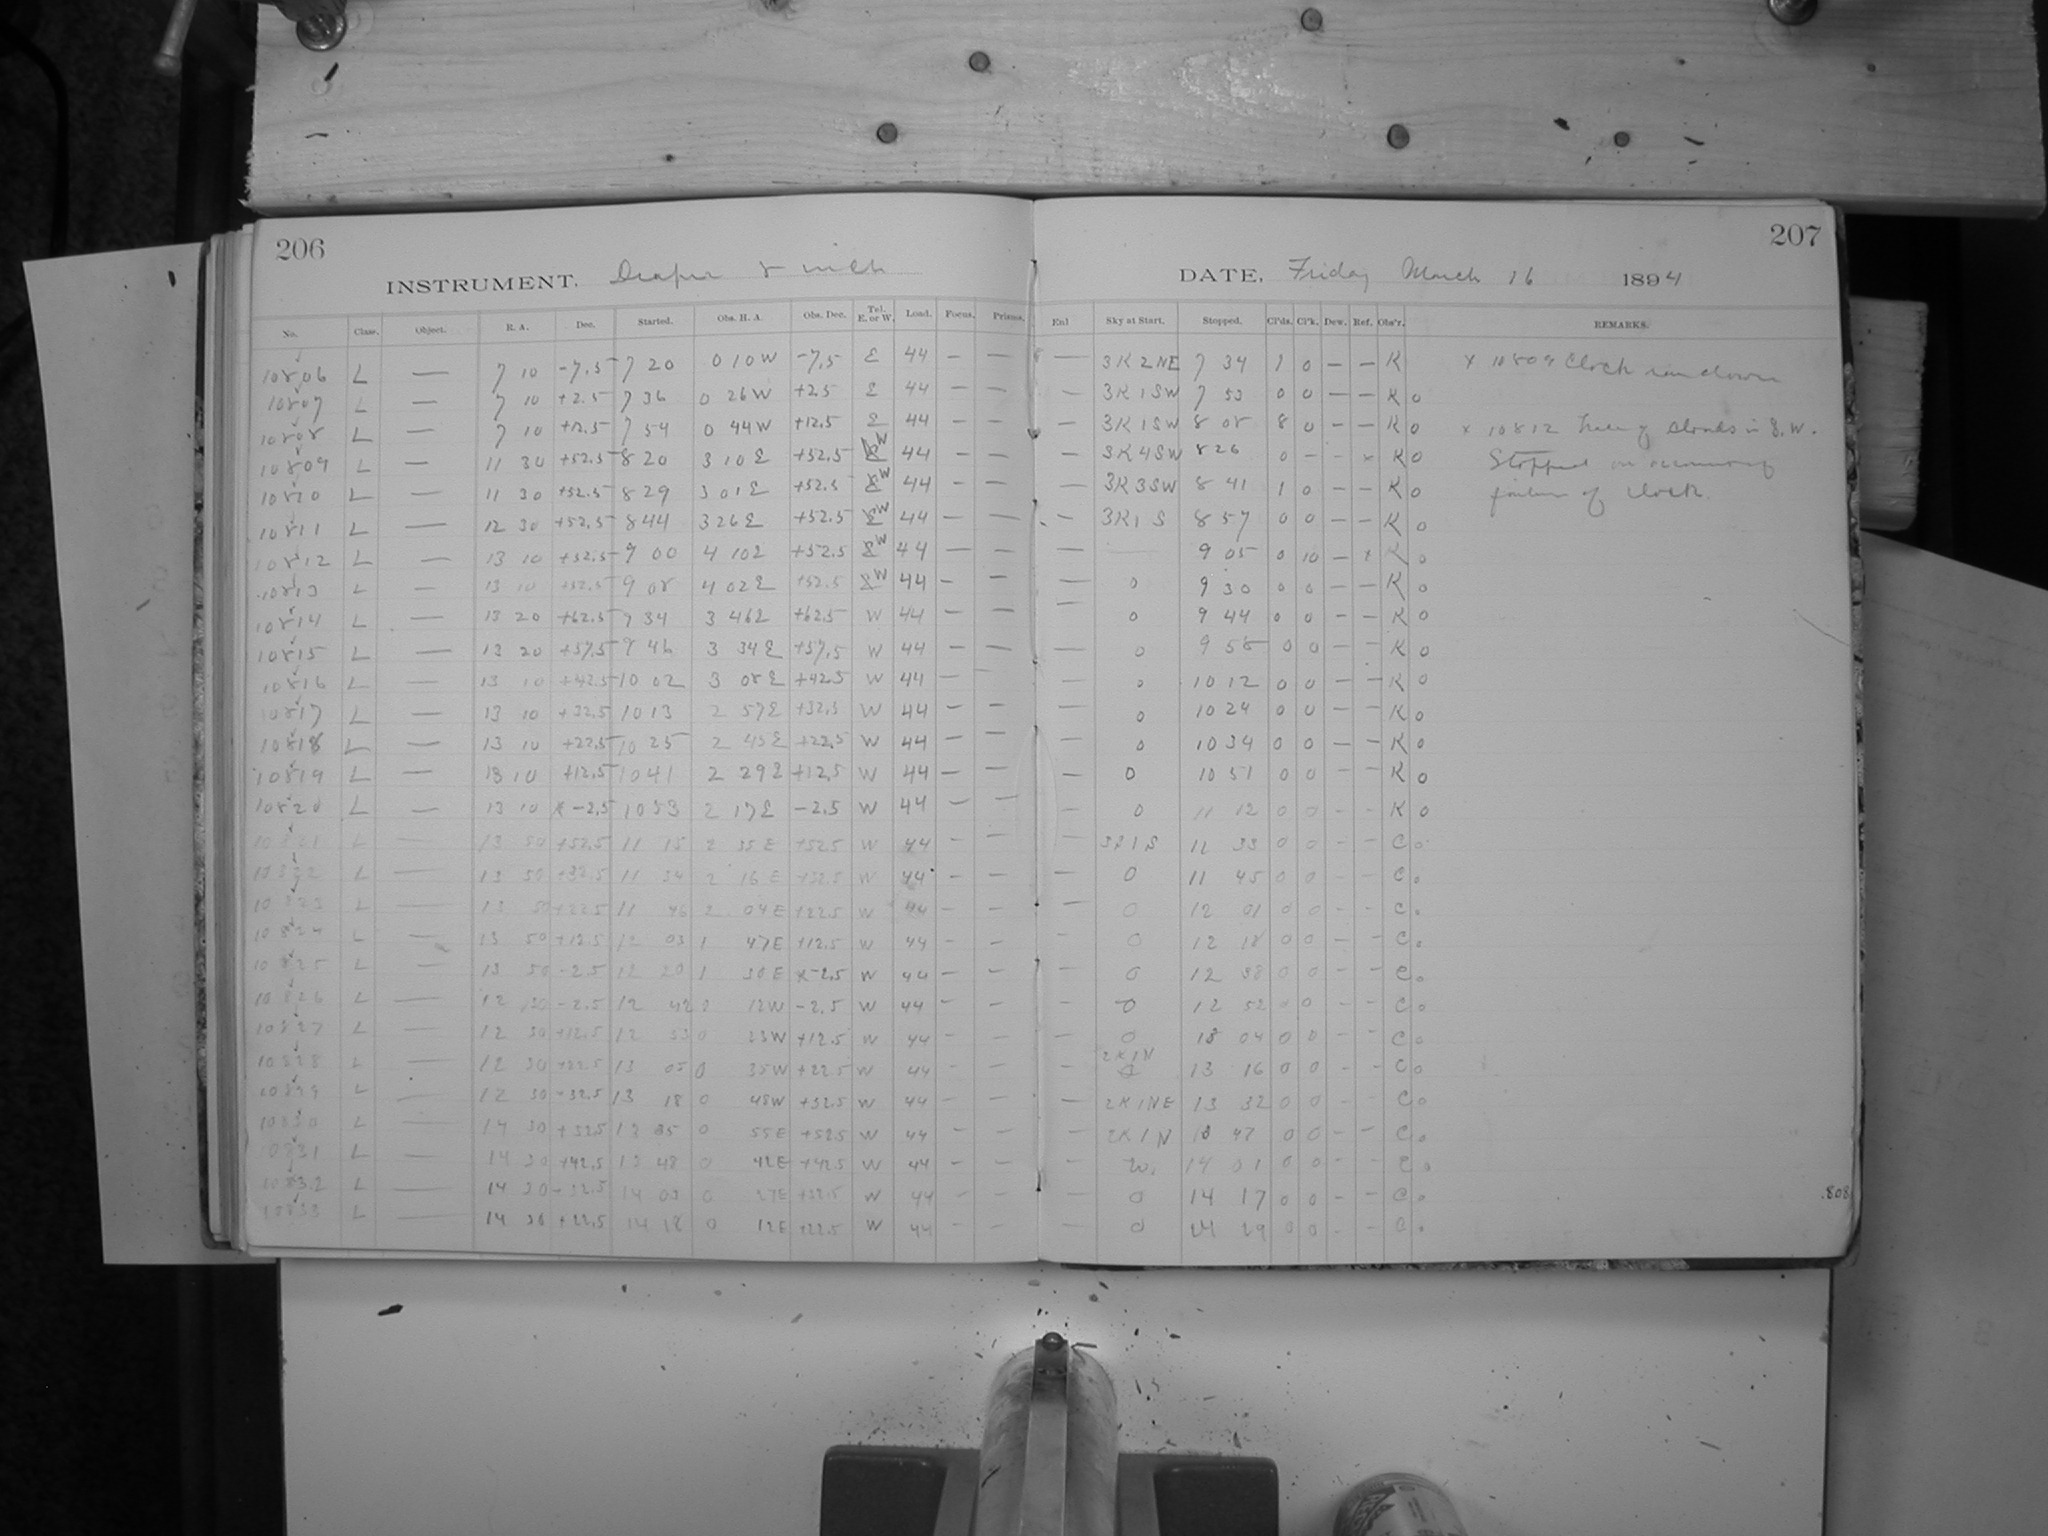 206
207
INSTRUMENT. Draper 8 inch
DATE, Friday March 16 1894
No. Class. Object. R. A. Dec. Started. Obs. H. A. Obs. Dec. Tel. E. or W. Load. Focus. Prisms. Enl Sky at Start. Stopped. Cl'ds. Cl'k. Dew. Ref. Obs'r. REMARKS.
10806 L — 7 10 -7.5 7 20 0 10 W -7.5 E 44 — — — 3K2NE 7 34 1 0 — — K x 10809 Clock run down
10807 L — 7 10 +2.5 7 36 0 26 W +2.5 E 44 — — — 3K1SW 7 53 0 0 — — K 0
10808 L — 7 10 +12.5 7 54 0 44 W +12.5 E 44 — — — 3K1SW 8 08 8 0 — — K 0 x 10812 clouds in S.W.
10809 L — 11 30 +52.5 8 20 3 10 E +52.5 W 44 — — — 3K4SW 8 26 0 — — x K 0 Stopped on account of
10810 L — 11 30 +52.5 8 29 3 01 E +52.5 W 44 — — — 3K3SW 8 41 1 0 — — K 0 failure of clock.
10811 L — 12 30 +52.5 8 44 3 26 E +52.5 W 44 — — — 3K1 S 8 57 0 0 — — K 0
10812 L — 13 10 +52.5 9 00 4 10 E +52.5 W 44 — — — 9 05 0 10 — x K 0
10813 L — 13 10 +52.5 9 08 4 02 E +52.5 W 44 — — — 0 9 30 0 0 — — K 0
10814 L — 13 20 +62.5 9 34 3 46 E +62.5 W 44 — — — 0 9 44 0 0 — — K 0
10815 L — 13 20 +57.5 9 46 3 34 E +57.5 W 44 — — — 0 9 58 0 0 — — K 0
10816 L — 13 10 +42.5 10 02 3 08 E +42.5 W 44 — — — 0 10 12 0 0 — — K 0
10817 L — 13 10 +32.5 10 13 2 57 E +32.5 W 44 — — — 0 10 24 0 0 — — K 0
10818 L — 13 10 +22.5 10 25 2 45 E +22.5 W 44 — — — 0 10 34 0 0 — — K 0
10819 L — 13 10 +12.5 10 41 2 29 E +12.5 W 44 — — — 0 10 51 0 0 — — K 0
10820 L — 13 10 x -2.5 10 53 2 17 E -2.5 W 44 — — — 0 11 12 0 0 — — K 0
L — 13 50 +52.5 11 15 2 35 E +52.5 W 44 — — — 11 33 0 0 — — C 0
10822 L — 13 50 +32.5 11 34 2 16 E +32.5 W 44 — — — 0 11 45 0 0 — — C 0
10823 L — 13 50 +22.5 11 46 2 04 E +22.5 W 44 — — — 0 12 01 0 0 — — C 0
10824 L — 13 50 +12.5 12 03 1 47 E +12.5 W 44 — — — 0 12 18 0 0 — — C 0
10825 L — 13 50 -2.5 12 20 1 30 E x -2.5 W 44 — — — 0 12 38 0 0 — — C 0
10826 L — 12 30 -2.5 12 42 0 12 W -2.5 W 44 — — — 0 12 52 0 0 — — C 0
10827 L — 12 30 +12.5 12 53 0 23 W +12.5 W 44 — — — 0 13 04 0 0 — — C 0
10828 L — 12 30 +22.5 13 05 0 35 W +22.5 W 44 — — — 2K1N 13 16 0 0 — — C 0
10829 L — 12 30 +32.5 13 18 0 48 W +32.5 W 44 — — — 2K1NE 13 32 0 0 — — C 0
10830 L — 14 30 +52.5 13 35 0 55 E +52.5 W 44 — — — 2K1N 13 47 0 0 — — C 0
10831 L — 14 30 +42.5 13 48 0 42 E +42.5 W 44 — — — 14 01 0 0 — — C 0
10832 L — 14 30 +32.5 14 03 0 27 E +32.5 W 44 — — — 0 14 17 0 0 — — C 0
10833 L — 14 30 +22.5 14 18 0 12 E +22.5 W 44 — — — 0 14 29 0 0 — — C 0
808